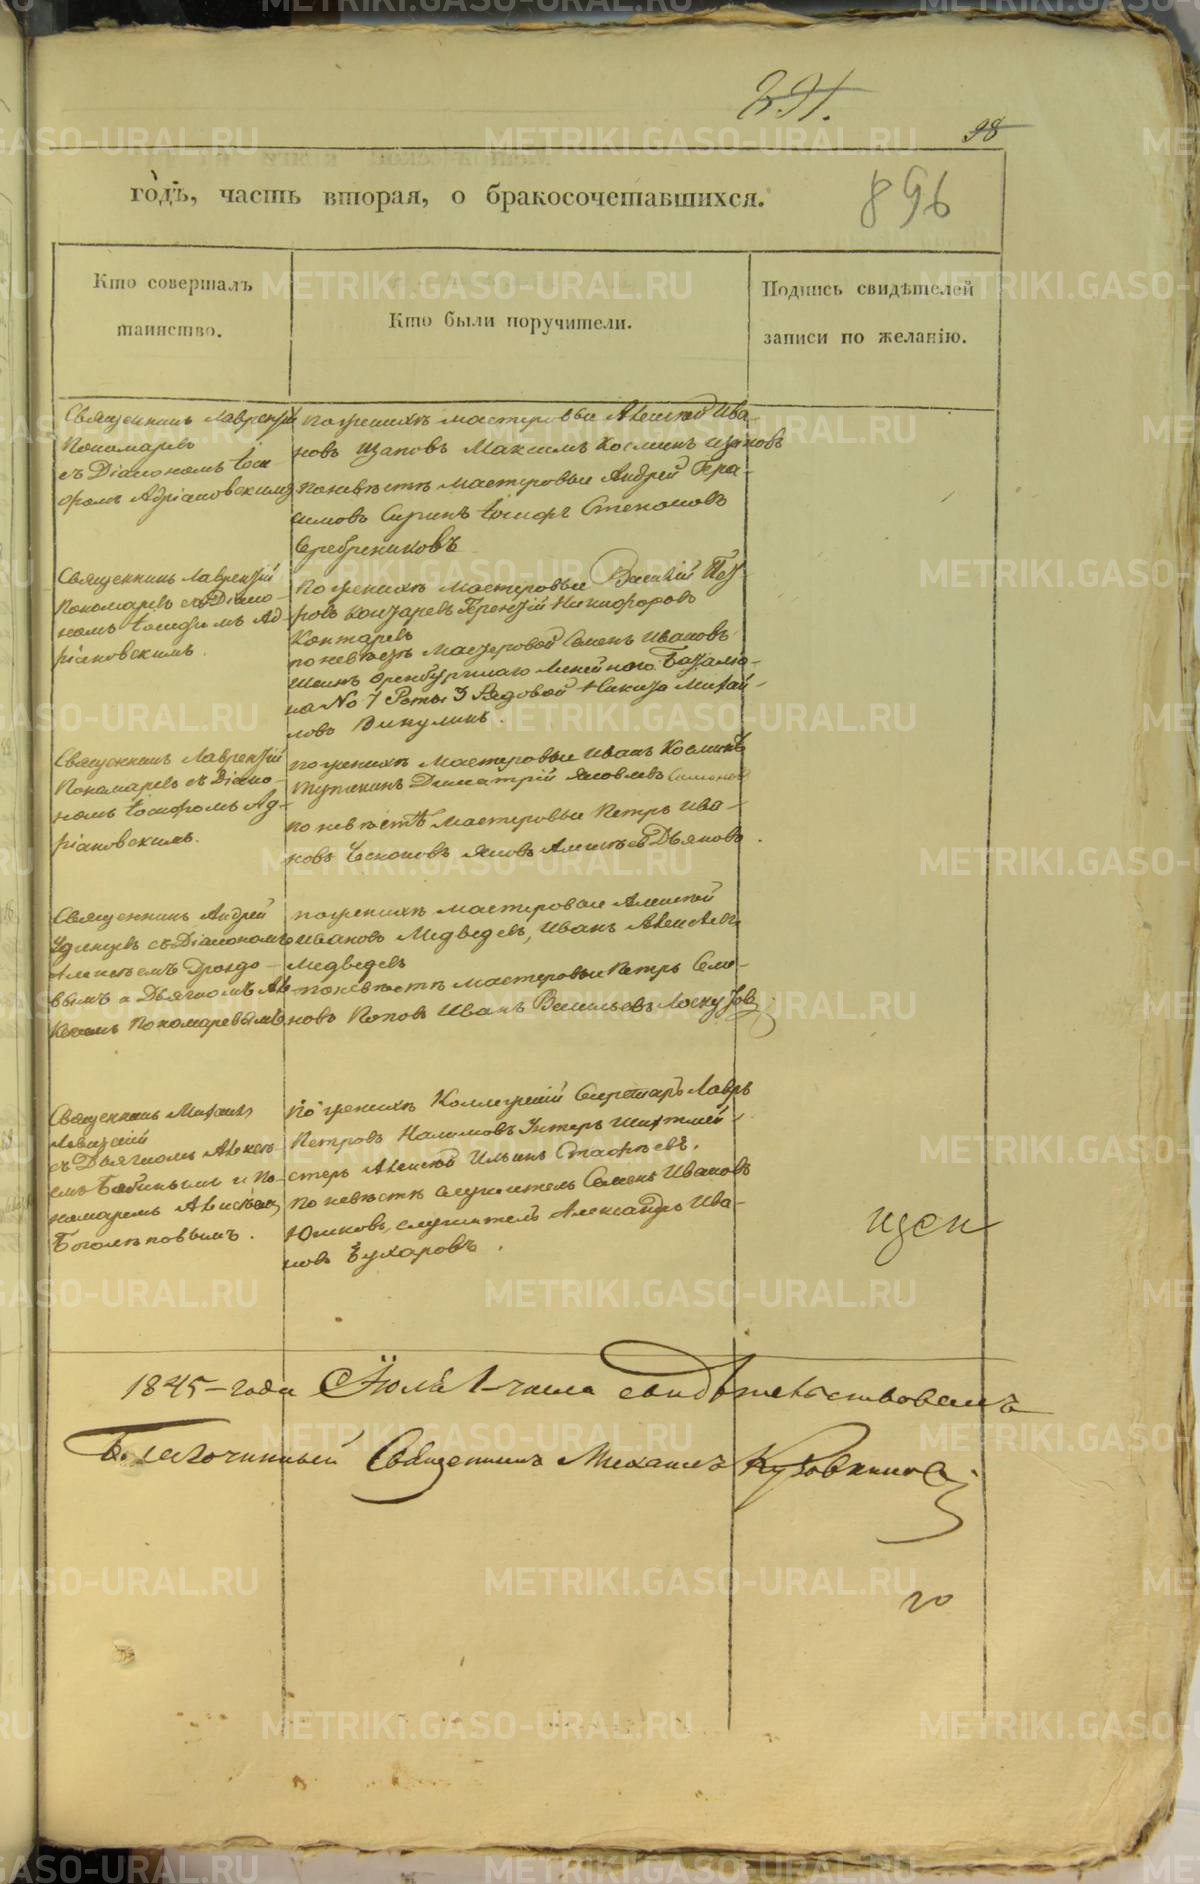 98
896
годъ, часть вторая, о бракосочетавшихся.
Кто совершалъ
таинство.
Кто были поручители.
Подпись свидѣтелей
записи по желанію.
Священникъ Лаврентій
Пономаревъ
съ Діакономъ Іоси
фомъ Адріановскимъ
по женихѣ мастеровые Алексѣй Ива-
новъ Максимъ Косминъ
по невѣстѣ мастеровые Андрей Гера-
симовъ Іосифъ Степановъ
Серебрениковъ
Священникъ Лаврентій
Пономаревъ съ Діако-
номъ Іосифомъ Ад
ріановскимъ.
по женихѣ мастеровые Василій Пет-
ровъ Терентій Никифоровъ
по невѣстѣ Мастеровой Семенъ Ивановъ
Оренбургскаго Линейнаго Баталіо-
на No 7 Роты 3 Рядовой Никита Михай-
ловъ Викулинъ.
Священникъ Лаврентій
Пономаревъ съ Діако-
номъ Іосифомъ Ад-
ріановскимъ.
по женихѣ Мастеровые Иванъ Косминъ
Димитрій Яковлевъ
по невѣстѣ Мастеровые Петръ Ива-
новъ Яковъ Алексѣевъ Дьяковъ.
Священникъ Андрей
Удинцевъ съ Діакономъ
Алексѣемъ Дроздо-
вымъ и Дьячкомъ
Пономаревымъ
по женихѣ мастеровые Алексѣй
Ивановъ Медведевъ, Иванъ Алексѣевъ
Медведевъ
по невѣстѣ мастеровые Петръ Семе-
новъ Поповъ Иванъ Васильевъ Лоскутовъ
Священникъ Михаилъ
съ Дьячкомъ Алексѣ-
емъ Бабинымъ и По-
номаремъ Алексѣемъ
Боголѣповымъ.
По женихѣ Коллежскій Секретарь Лавръ
Петровъ Налимовъ Унтеръ Шихтмей-
стеръ Алексѣй Ильинъ Стафѣевъ.
По невѣстѣ служитель Семенъ Ивановъ
Юшковъ, служитель Александръ Ива-
новъ Бухаровъ.
1845-года Іюля 1-числа свидѣтельствовалъ
Благочинный Священникъ Михаилъ Кузовниковъ
METRIKI.GASO-URAL.RU